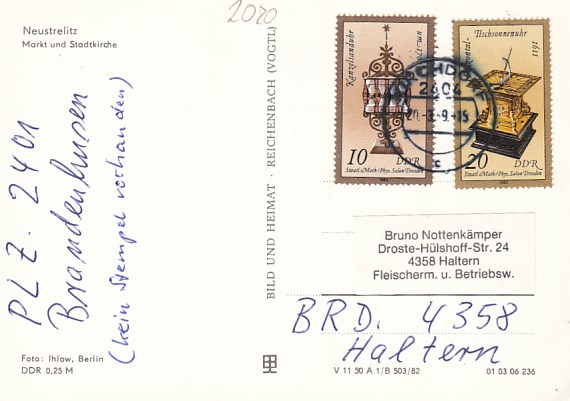 Neustrelitz
Markt und Stadtkirche
2020
PLZ. 2401
Brandenhusen
(kein Stempel vorhanden)
Foto: Ihlow, Berlin
DDR 0,25 M
BILD UND HEIMAT · REICHENBACH (VOGTL)
Kanzelsanduhr
10 DDR
Staatl. Math.-Phys. Salon Dresden
1983
Tischsonnenuhr
1611
20 DDR
Staatl. Math.-Phys. Salon Dresden
1983
KIRCHDORF
2404
Bruno Nottenkämper
Droste-Hülshoff-Str. 24
4358 Haltern
Fleischerm. u. Betriebsw.
BRD. 4358
Haltern
V 11 50 A 1/B 503/82
01 03 06 236